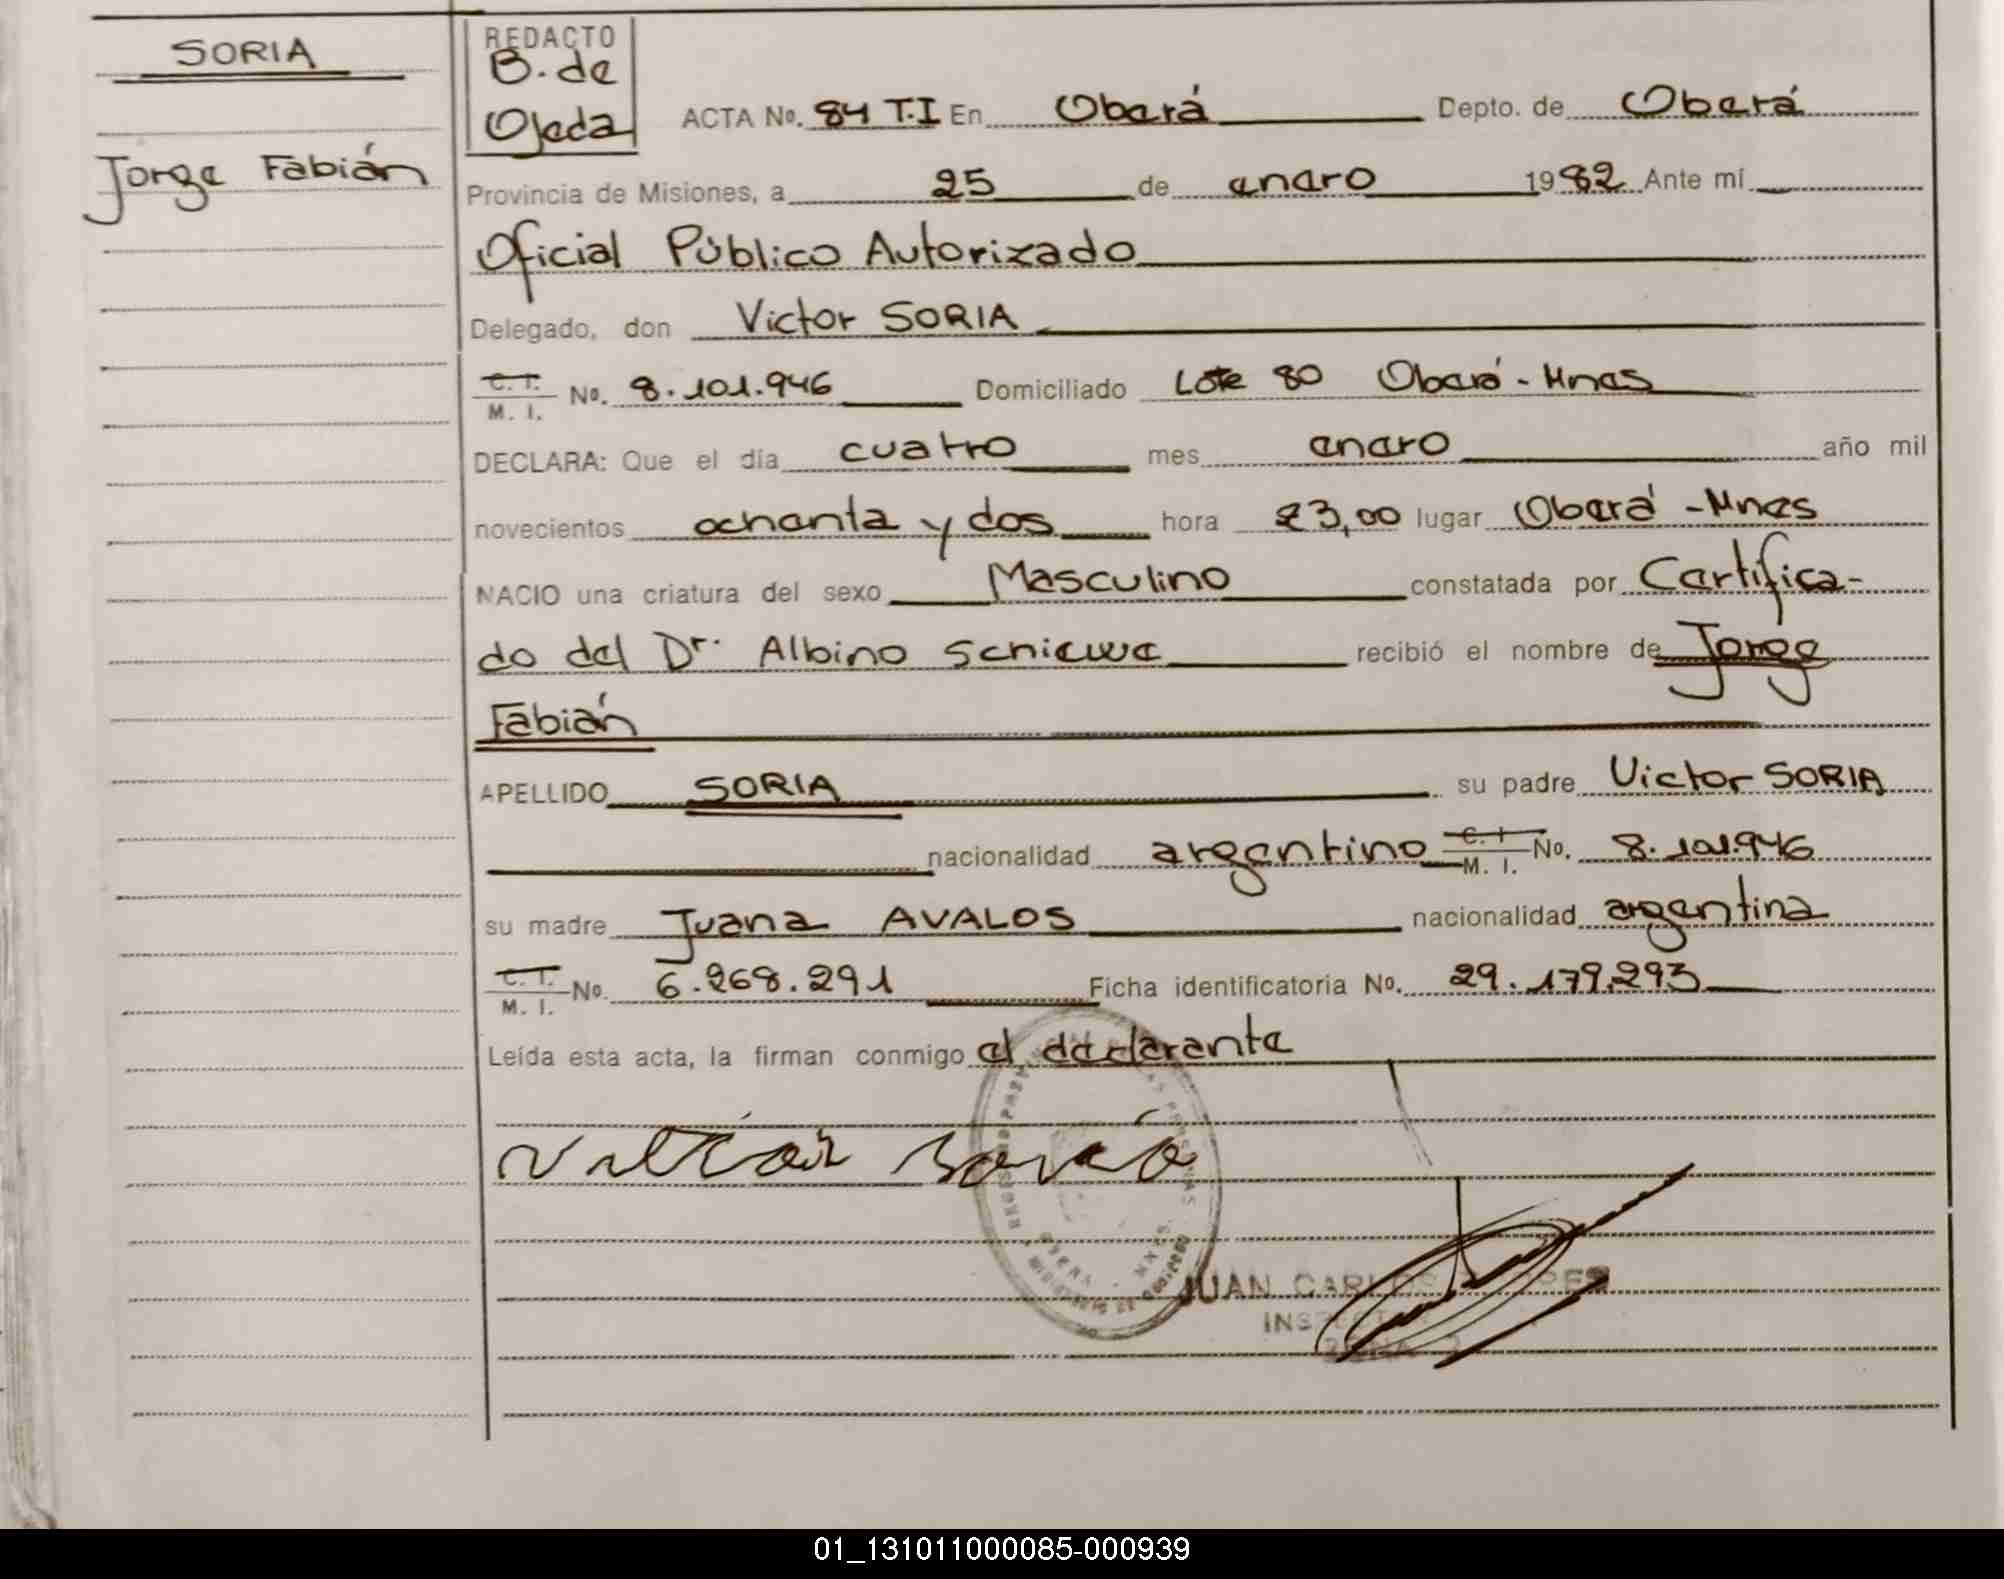 SORIA
Jorge Fabián
REDACTO
B. de
Ojeda
ACTA No. 84 T.I En Oberá Depto. de Oberá
Provincia de Misiones, a 25 de enero 1982 Ante mí
Oficial Público Autorizado
Delegado, don Victor SORIA
C. I. M. I. No. 8.101.946 Domiciliado Lote 80 Oberá - Mnes
DECLARA: Que el día cuatro mes enero año mil
novecientos ochenta y dos hora 23,00 lugar Oberá - Mnes
NACIO una criatura del sexo Masculino constatada por Certifica-
do del Dr. Albino Schiewe recibió el nombre de Jorge
Fabián
APELLIDO SORIA su padre Victor SORIA
nacionalidad argentino C. I. M. I. No. 8.101.946
su madre Juana AVALOS nacionalidad argentina
C. I. M. I. No. 6.268.291 Ficha identificatoria No. 29.179.293
Leída esta acta, la firman conmigo el declarante
JUAN CARLOS
01_131011000085-000939